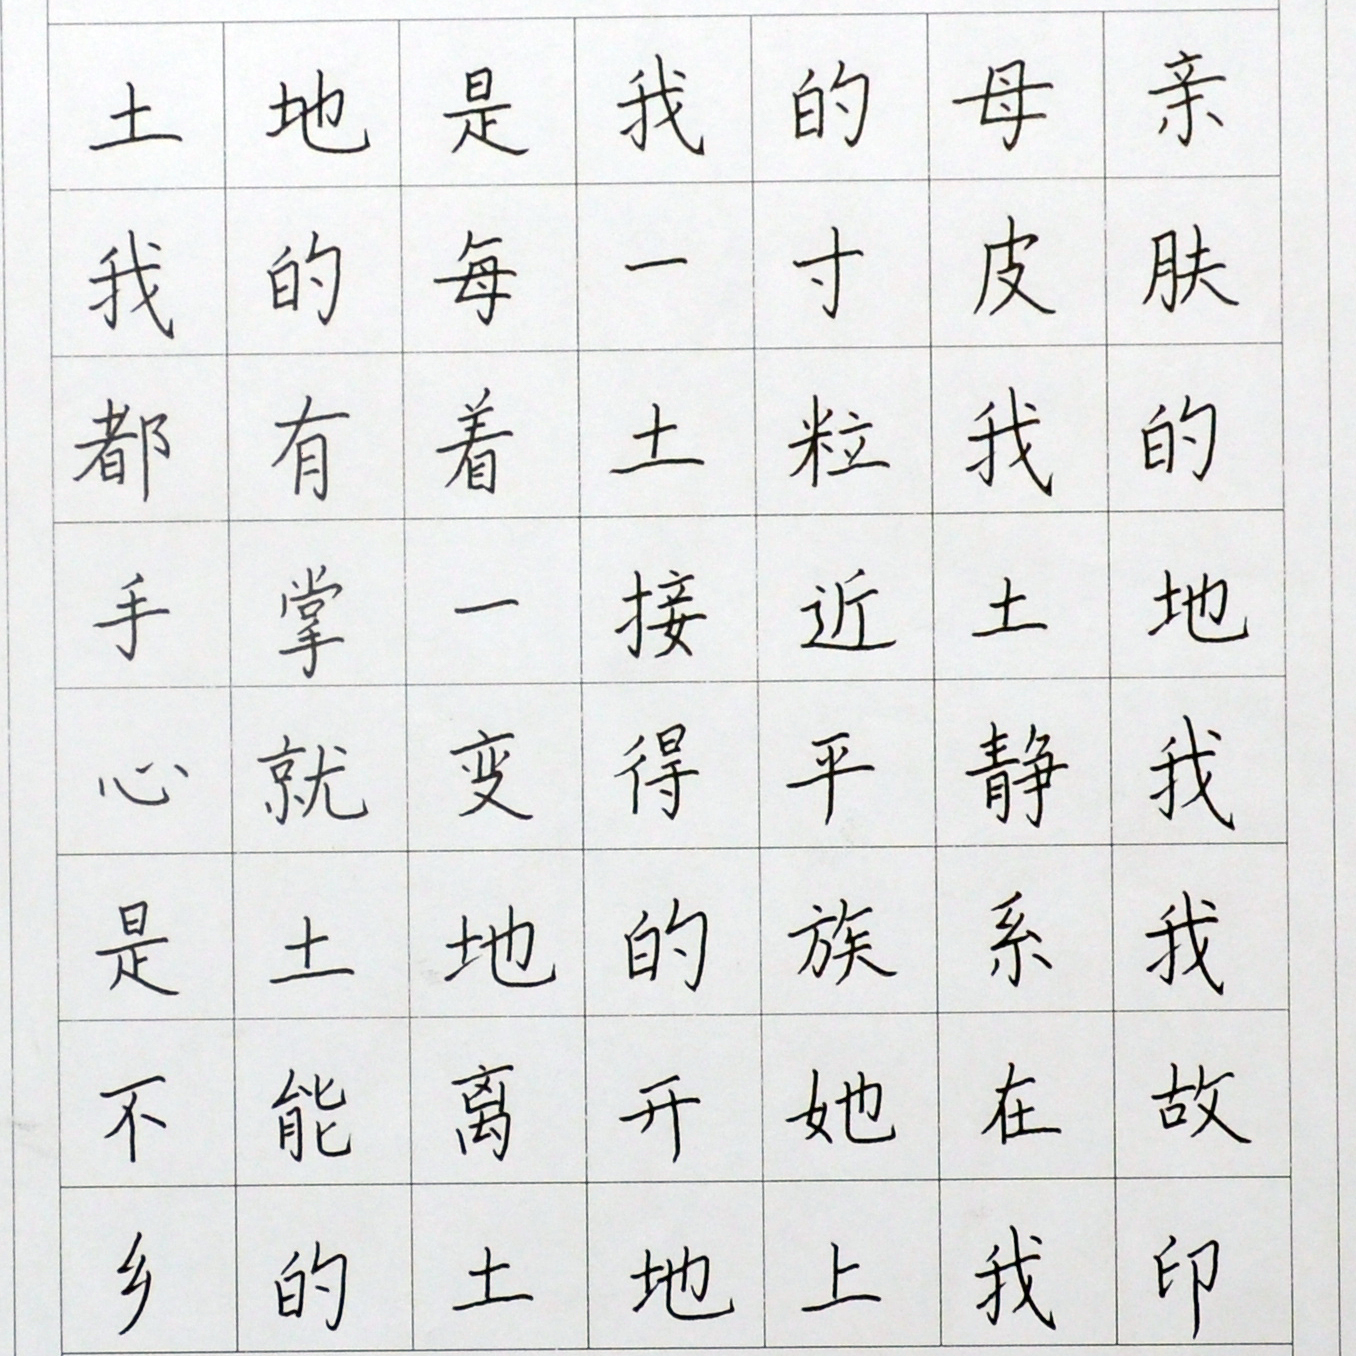 土地是我的母亲
我的每一寸皮肤
都有着土粒我的
手掌一接近土地
心就变得平静我
是土地的族系我
不能离开她在故
乡的土地上我印